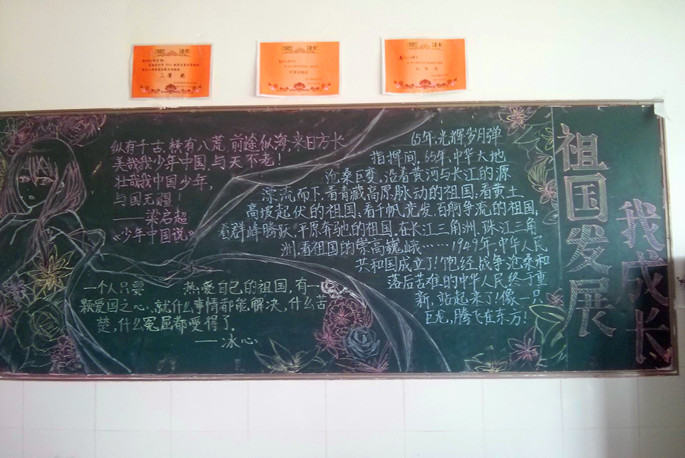 纵有千古,横有八荒,前途似海,来日方长
美哉我少年中国,与天不老!
壮哉我中国少年,
与国无疆!
——梁启超
《少年中国说》
一个人只要 热爱自己的祖国,有一
颗爱国之心,就什么事情都能解决,什么苦
楚,什么冤屈都受得了
——冰心
65年,光辉岁月弹
指挥间,65年,中华大地
沧桑巨变,沿着黄河与长江的源
漂流而下,看青藏高原脉动的祖国,看黄土
高坡起伏的祖国,看千帆竞发,百舸争流的祖国,
看群峰腾跃,平原奔驰的祖国,在长江三角洲,珠江三角
洲,看祖国的崇高巍峨……1949年,中华人民
共和国成立了!饱经战争沧桑和
落后苦难的中华人民终于重
新,站起来了!像一只
巨龙,腾飞在东方!
祖国发展
我成长